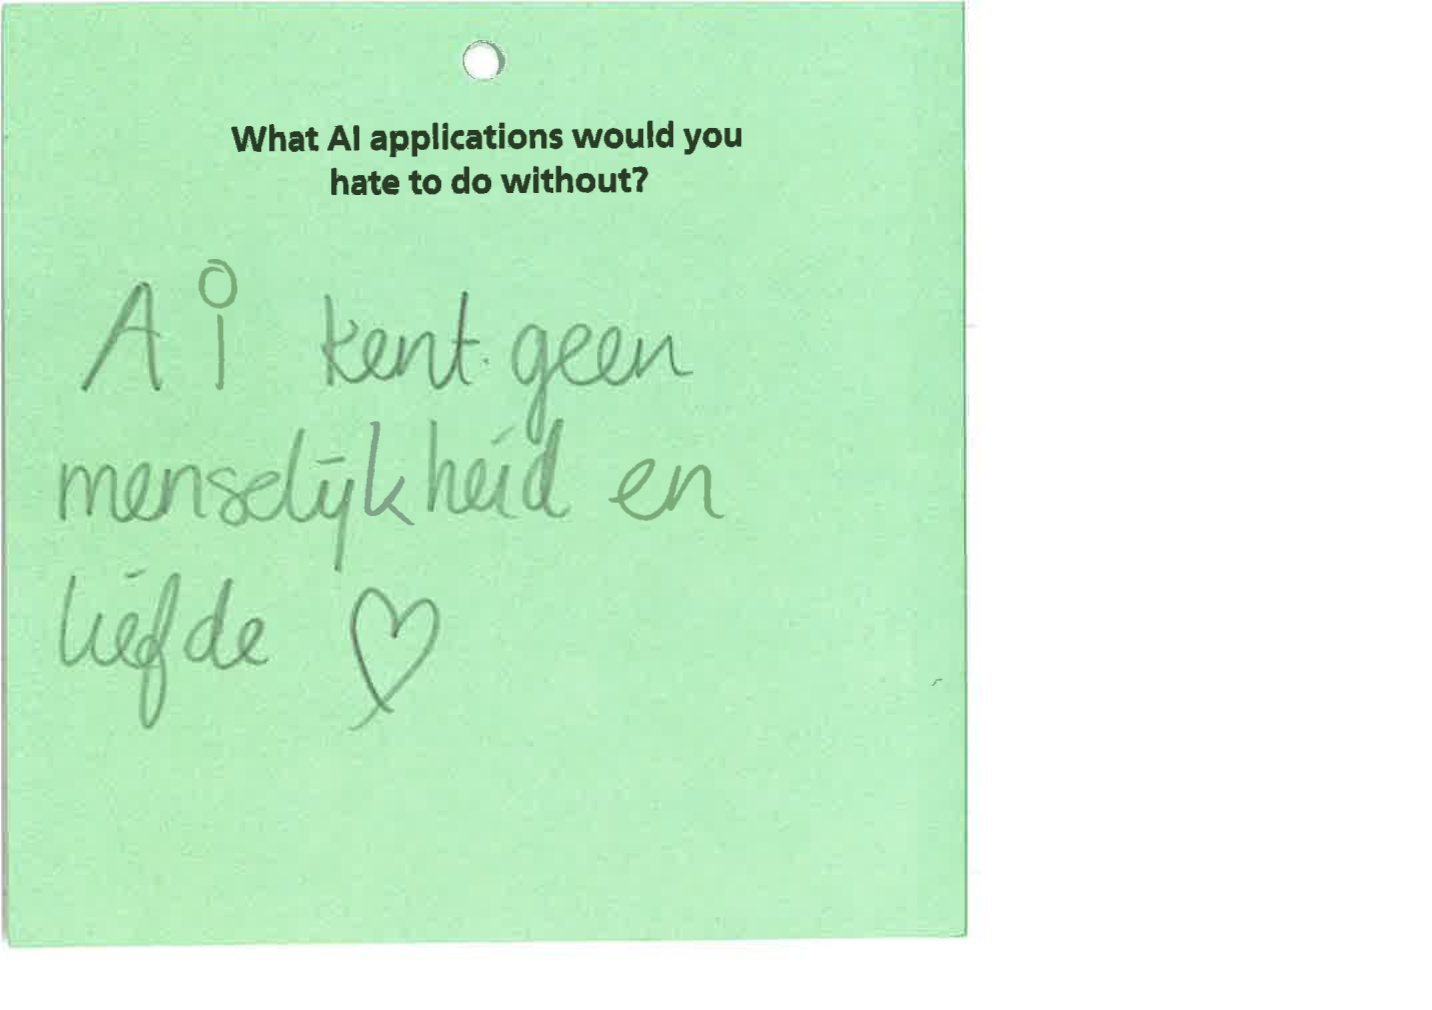 What AI applications would you
hate to do without?
Ai kent geen
menselijkheid en
liefde ♡